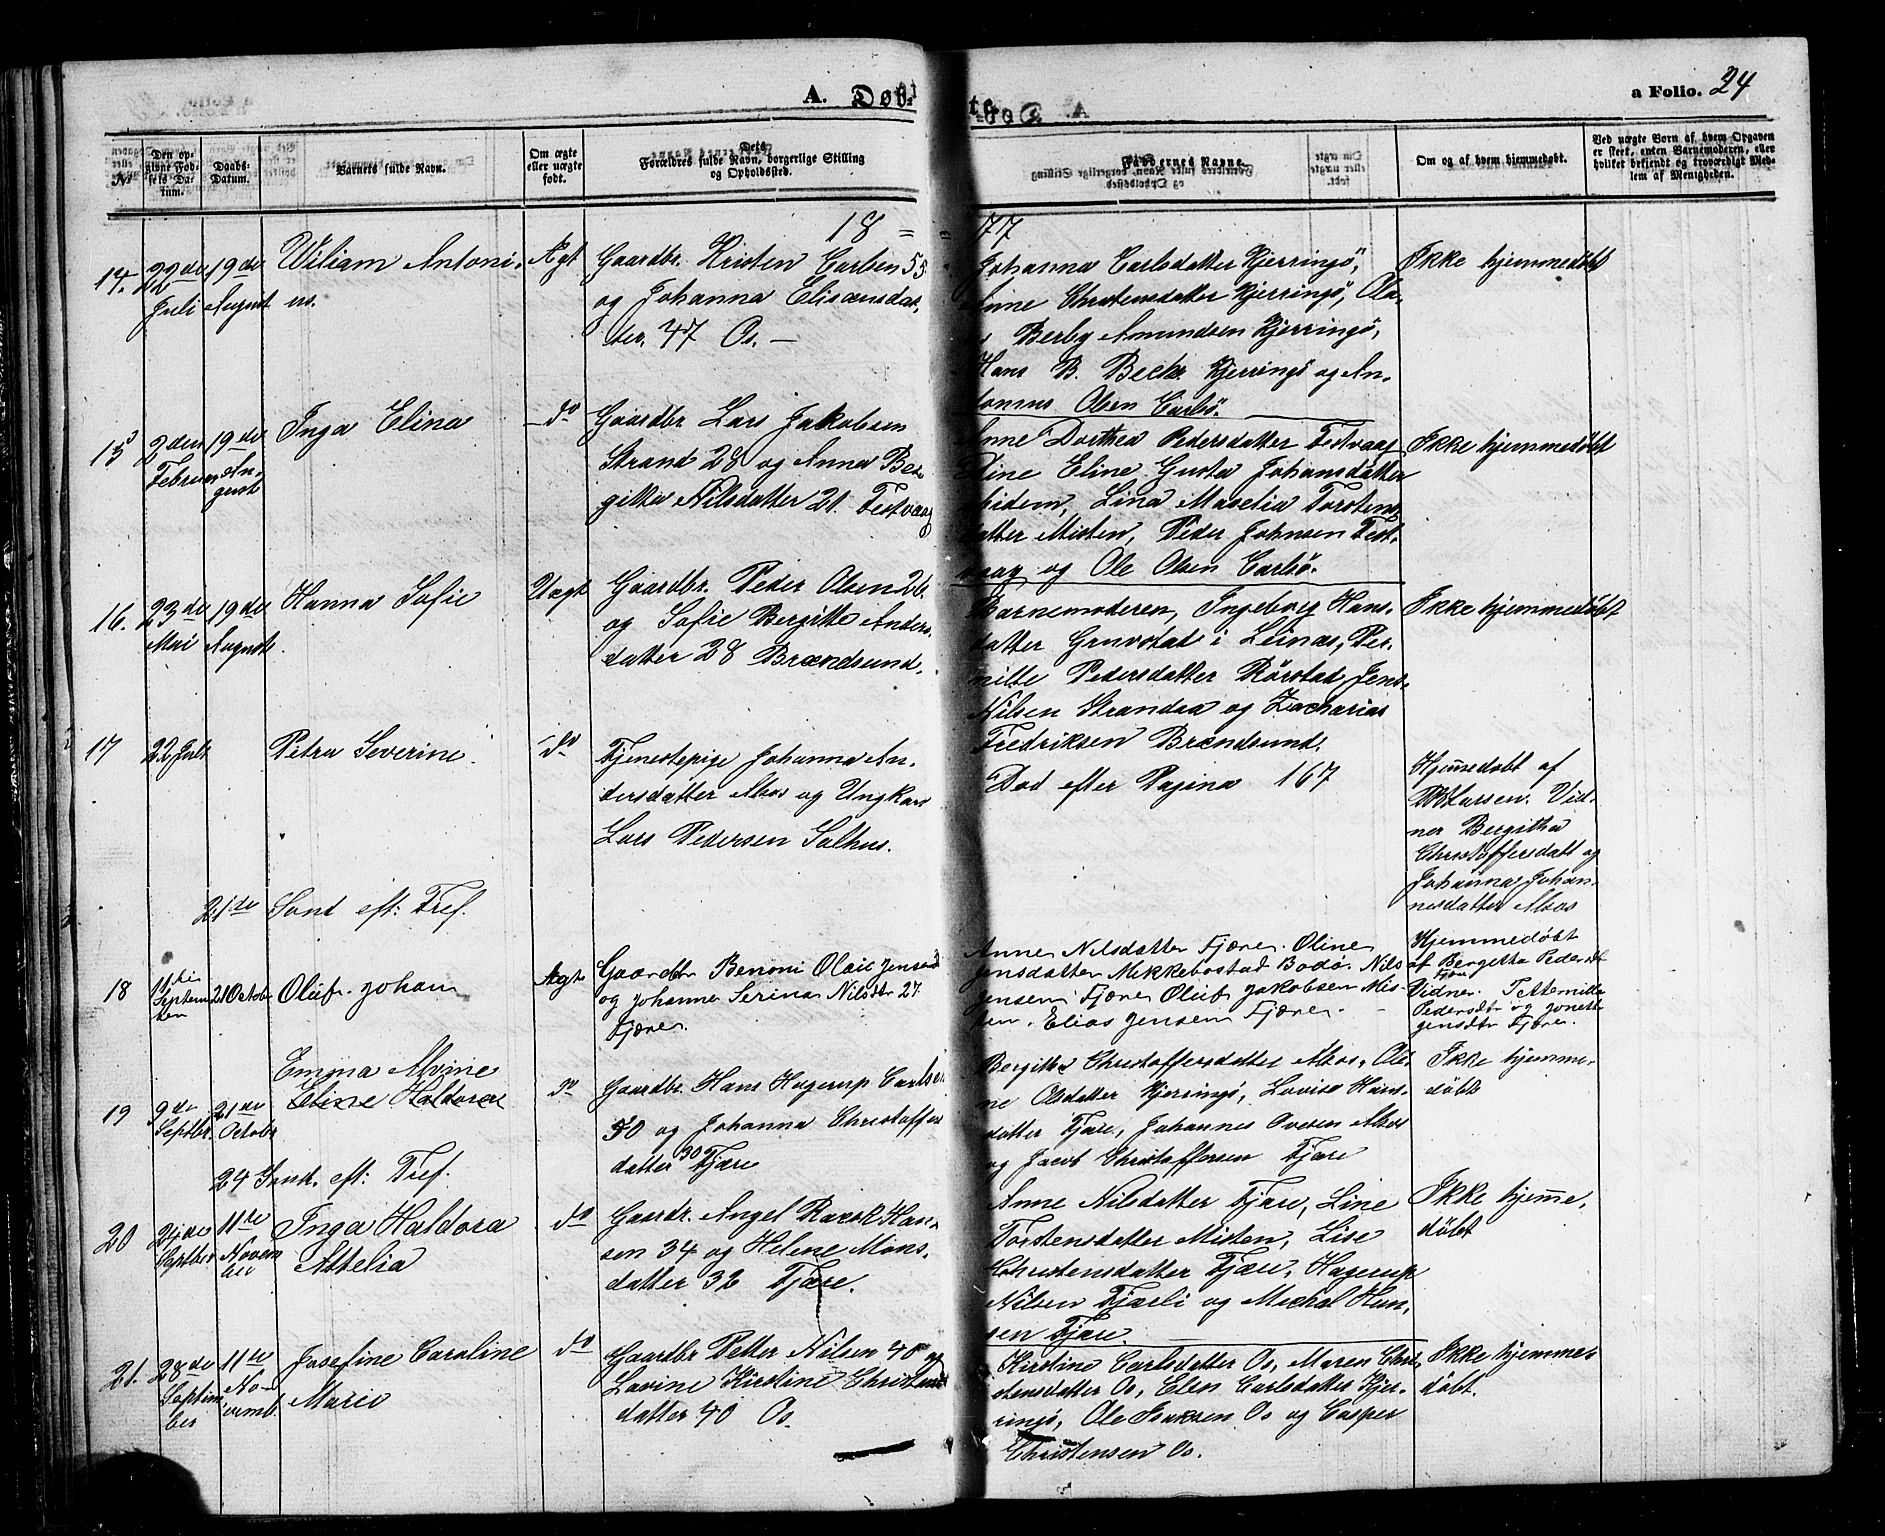 A. Døbte. a Folio. 24
No
Den opgivne Fødsels Datum.
Daabs-Datum.
Barnets fulde Navn.
Om ægte eller uægte født.
Dets Forældres fulde Navn, borgerlige Stilling og Opholdssted.
Faddernes Navne.
Om og af hvem hjemmedøbt.
Ved uægte Børn af hvem Opgaven er skeet, enten Barnemoderen, eller hvilket bekjendt og troværdigt Medlem af Menigheden.
18 = = 77
14. 22de Juli
19de August
Wiliam Antoni-
us.
Ægt
Gaardbr. Kristen Carlsen 55
og Johanna Elisæusdat-
ter. 47 Os. —
Johanna Carlsdatter Kjerringö,
Anne Christensdatter Kjerringö, Ola-
Berby Amundsen Kjerringö,
Hans B. Beck Kjerringö og An-
tonius Olsen Carlsö.
Ikke hjemmedøbt
15 2den Februar
19de August
Inga Elina
do
Gaardbr Lars Jakobsen
Strand 28 og Anna Ber-
gitta Nilsdatter 21. Festvaag
Anne Dorthea Pedersdatter Festvaag
Eline Gusta Johansdatter
ibidem, Lina Maselia Torstens-
datter Misten, Peder Johnsen Fest-
vaag og Ole Olsen Carlsö.
Ikke hjemmedøbt
16. 23de Mai
19de August
Hanna Sofie
Uægt
Gaardbr. Peder Olsen 26
og Sofie Bergitte Anders-
datter 28 Brændsund.
Barnemoderen, Ingeborg Hans-
datter Grnvstad i Leinæs, Per-
nille Pedersdatter Rörstad, Jens
Nilsen Strandaa og Zacharias
Fredriksen Brændsund.
Ikke hjemmedøbt
17 22 Juli
Petra Severine
do
Tjenestepige Johanna An-
dersdatter Alsos og Ungkarl
Lars Pedersen Salhus.
Död efter Pagina 167
Hjemmedøbt af
Larsen. Vid-
ner Bergitha
Christoffersdatt og
Johanna Johan-
nesdatter Alsos
21de Sönd eft: Tref.
18 11te Septem
21 Octob
Oluf Johan
Ægt
Gaardbr Benoni Olaie Jensen
og Johanna Serina Nilsdtr 27
Fjære.
Anne Nilsdatter Fjære. Oline
Jensdatter Mikkelbostad Bodö. Nils
Jensen Fjære Oluf Jakobsen Mis-
ten. Elias Jensen Fjære.
Hjemmedøbt
af Bergitta Pedersdt
Fjære
Vidner. Petternille
Pedersdtr og Jonette
Jensdtr Fjære.
Emma Alvine
19 9de Septbr.
21de Octobr
Eline Haldora
do
Gaardbr. Hans Hagerup Carlsen
30 og Johanna Christoffers
datter 30 Fjære
Bergitha Christoffersdatter Alsos, Oli-
ne Olsdatter Kjerringö, Lovise Hans-
datter Fjære, Johannes Ovesen Alsos
og Jacob Christoffersen Fjære
Ikke hjemme-
døbt
24 Sönd. eft: Tref.
20 24de Septber
11te November
Inga Haldora
Attelia
do
Gaardr. Angel Rarsk Han-
sen 34 og Helene Mons-
datter 32 Fjære.
Anne Nilsdatter Fjære, Line
Torstensdatter Misten, Lise
Christensdatter Fjære, Hagerup
Nilsen Fjærli og Michal Han-
sen Fjære.
Ikke hjemme-
døbt
21. 28de September
11te Novemb.
Josefine Caroline
Marie
do
Gaardbr Petter Nilsen 40 og
Lovine Kirstine Christens
datter 40 Os.
Kirstine Carlsdatter Os, Maren Chri-
stensdatter Os, Elen Carlsdatter Kjer-
ringö, Ole Isaksen Os og Casper
Christensen Os.
Ikke hjemme-
døbt.